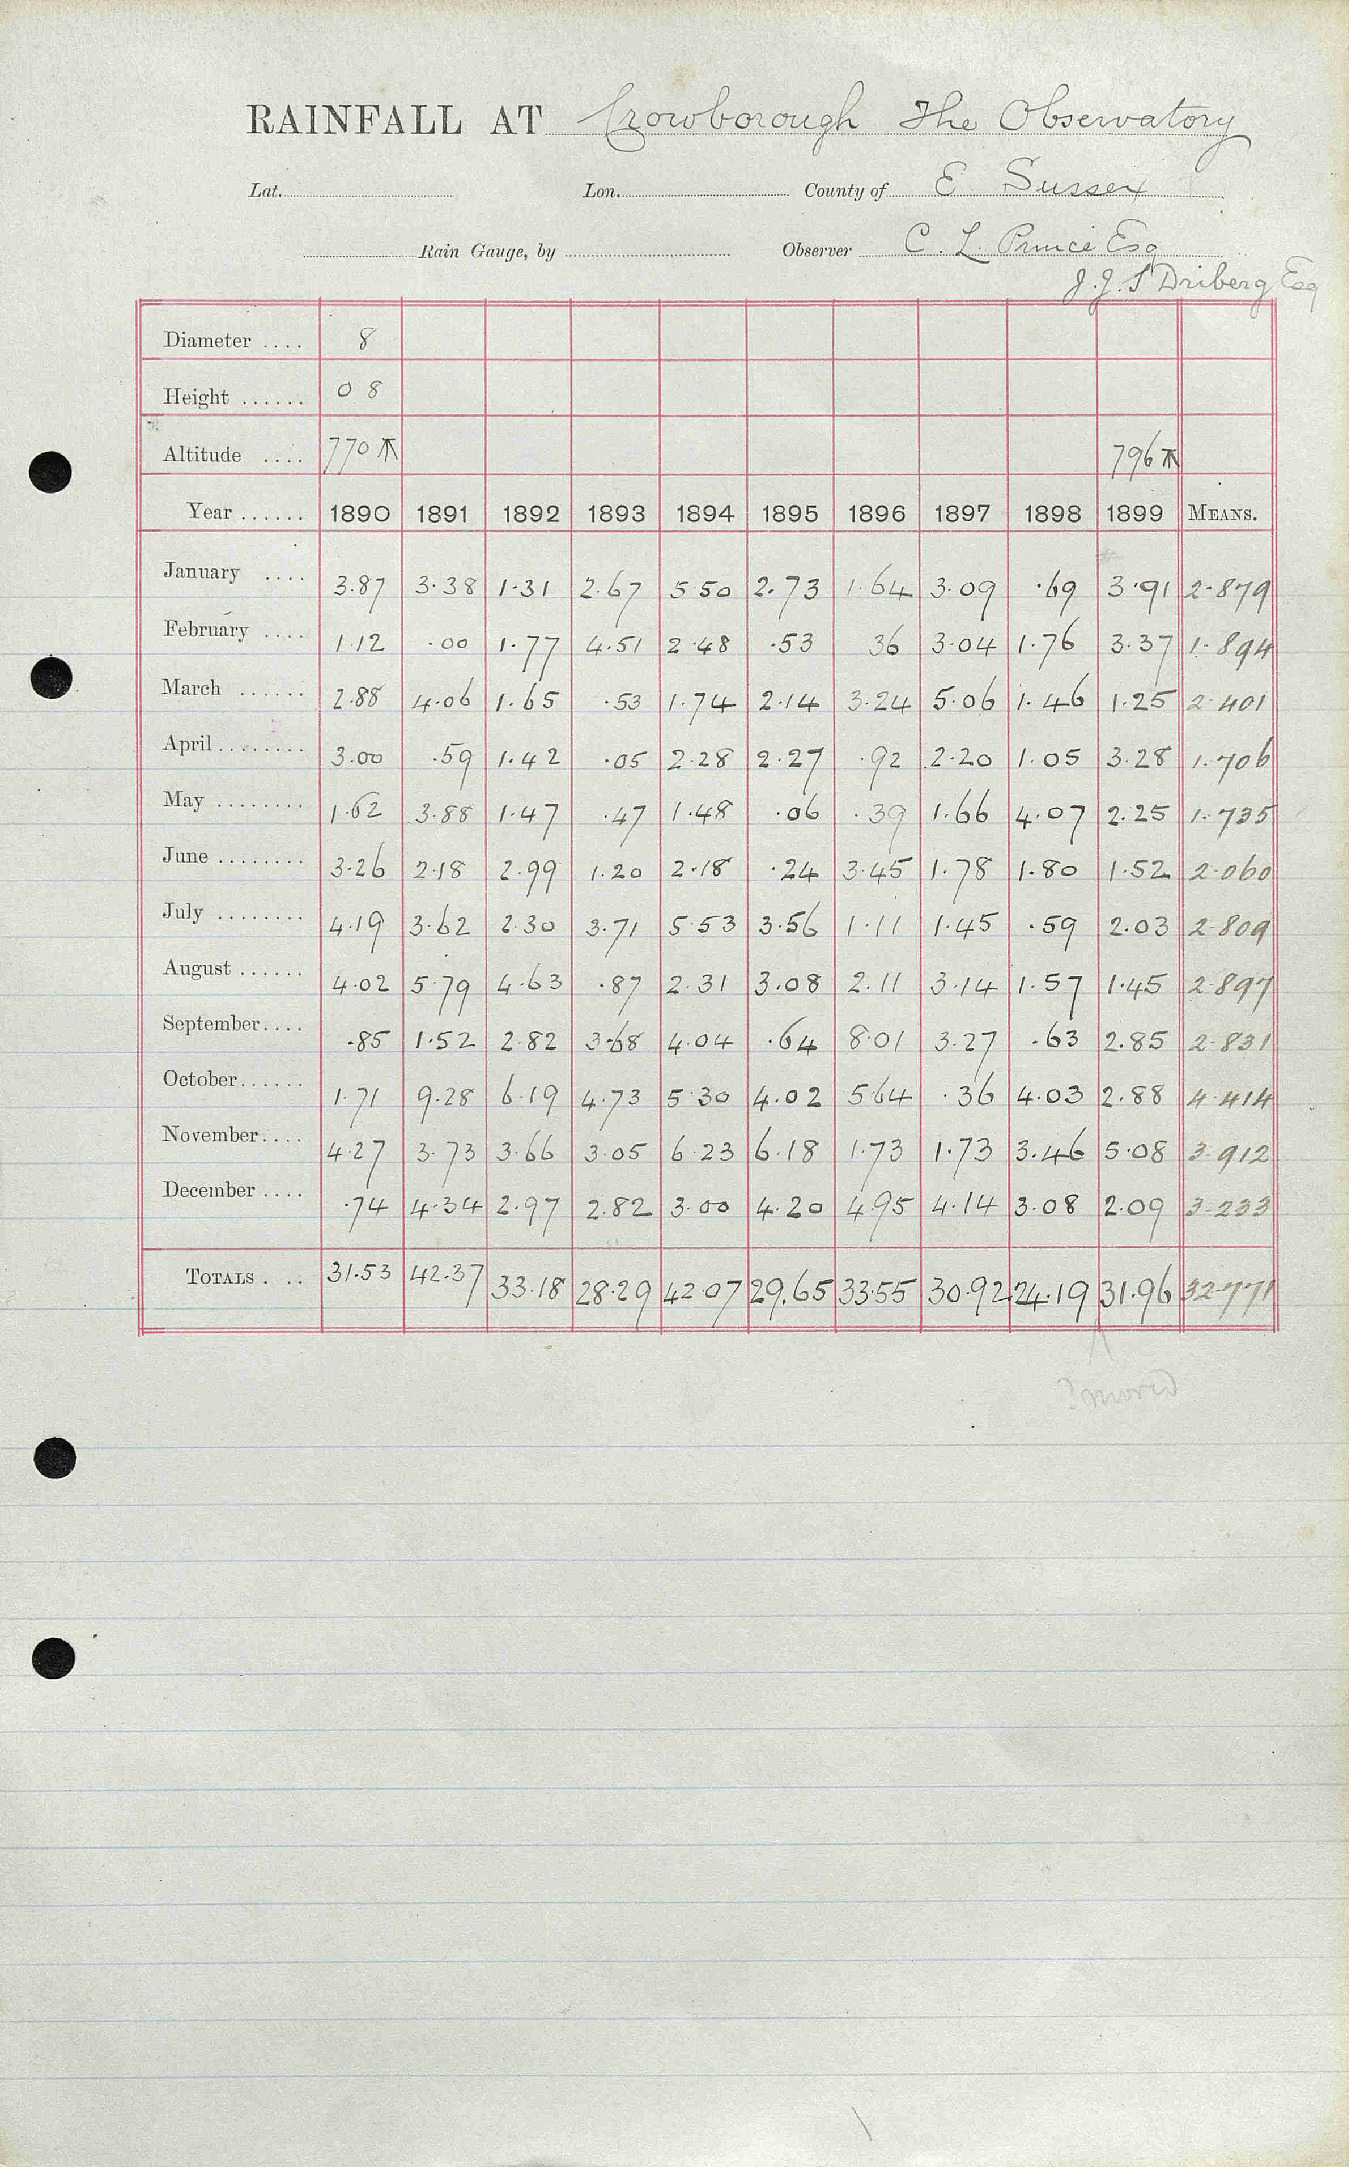 RAINFALL AT Crowborough The Observatory
Lat. Lon. County of E Sussex
Rain Gauge, by Observer C. L. Prince Esq
J. J. S Driberg Esq
Diameter .... 8
Height ...... 0 8
Altitude .... 770 796
Year ...... 1890 1891 1892 1893 1894 1895 1896 1897 1898 1899 MEANS.
January .... 3.87 3.38 1.31 2.67 5.50 2.73 1.64 3.09 .69 3.91 2.879
February .... 1.12 .00 1.77 4.51 2.48 .53 36 3.04 1.76 3.37 1.894
March ...... 2.88 4.06 1.65 .53 1.74 2.14 3.24 5.06 1.46 1.25 2.401
April ........ 3.00 .59 1.42 .05 2.28 2.27 .92 2.20 1.05 3.28 1.706
May ........ 1.62 3.88 1.47 .47 1.48 .06 .39 1.66 4.07 2.25 1.735
June ........ 3.26 2.18 2.99 1.20 2.18 .24 3.45 1.78 1.80 1.52 2.060
July ........ 4.19 3.62 2.30 3.71 5.53 3.56 1.11 1.45 .59 2.03 2.809
August ...... 4.02 5.79 4.63 .87 2.31 3.08 2.11 3.14 1.57 1.45 2.897
September.... .85 1.52 2.82 3.68 4.04 .64 8.01 3.27 .63 2.85 2.831
October...... 1.71 9.28 6.19 4.73 5.30 4.02 5.64 .36 4.03 2.88 4.414
November.... 4.27 3.73 3.66 3.05 6.23 6.18 1.73 1.73 3.46 5.08 3.912
December .... .74 4.34 2.97 2.82 3.00 4.20 4.95 4.14 3.08 2.09 3.233
TOTALS . .. 31.53 42.37 33.18 28.29 42.07 29.65 33.55 30.92 24.19 31.96 32.771
? moved